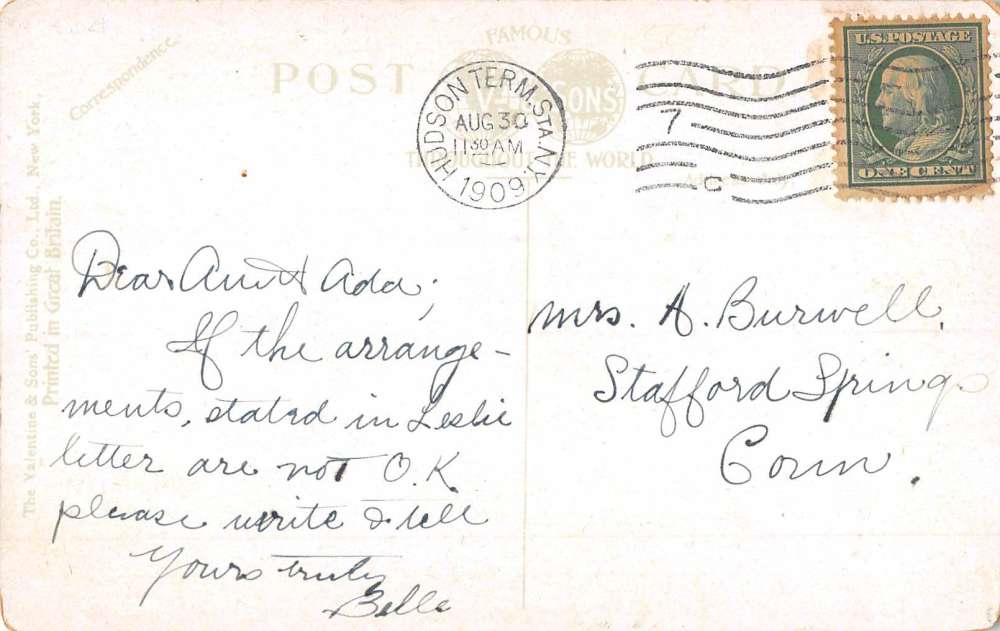 Correspondence.
FAMOUS
POST CARD
SONS
THROUGHOUT THE WORLD
HUDSON TERM. STA. N.Y.
AUG 30
11 30 AM
1909
7
C
U.S. POSTAGE
ONE CENT
The Valentine & Sons' Publishing Co., Ltd., New York.
Printed in Great Britain.
Dear Aunt Ada;
If the arrange-
ments, stated in Leslie
letter are not O.K.
please write & tell
Yours truly
Belle
Mrs. A. Burwell.
Stafford Springs
Conn.